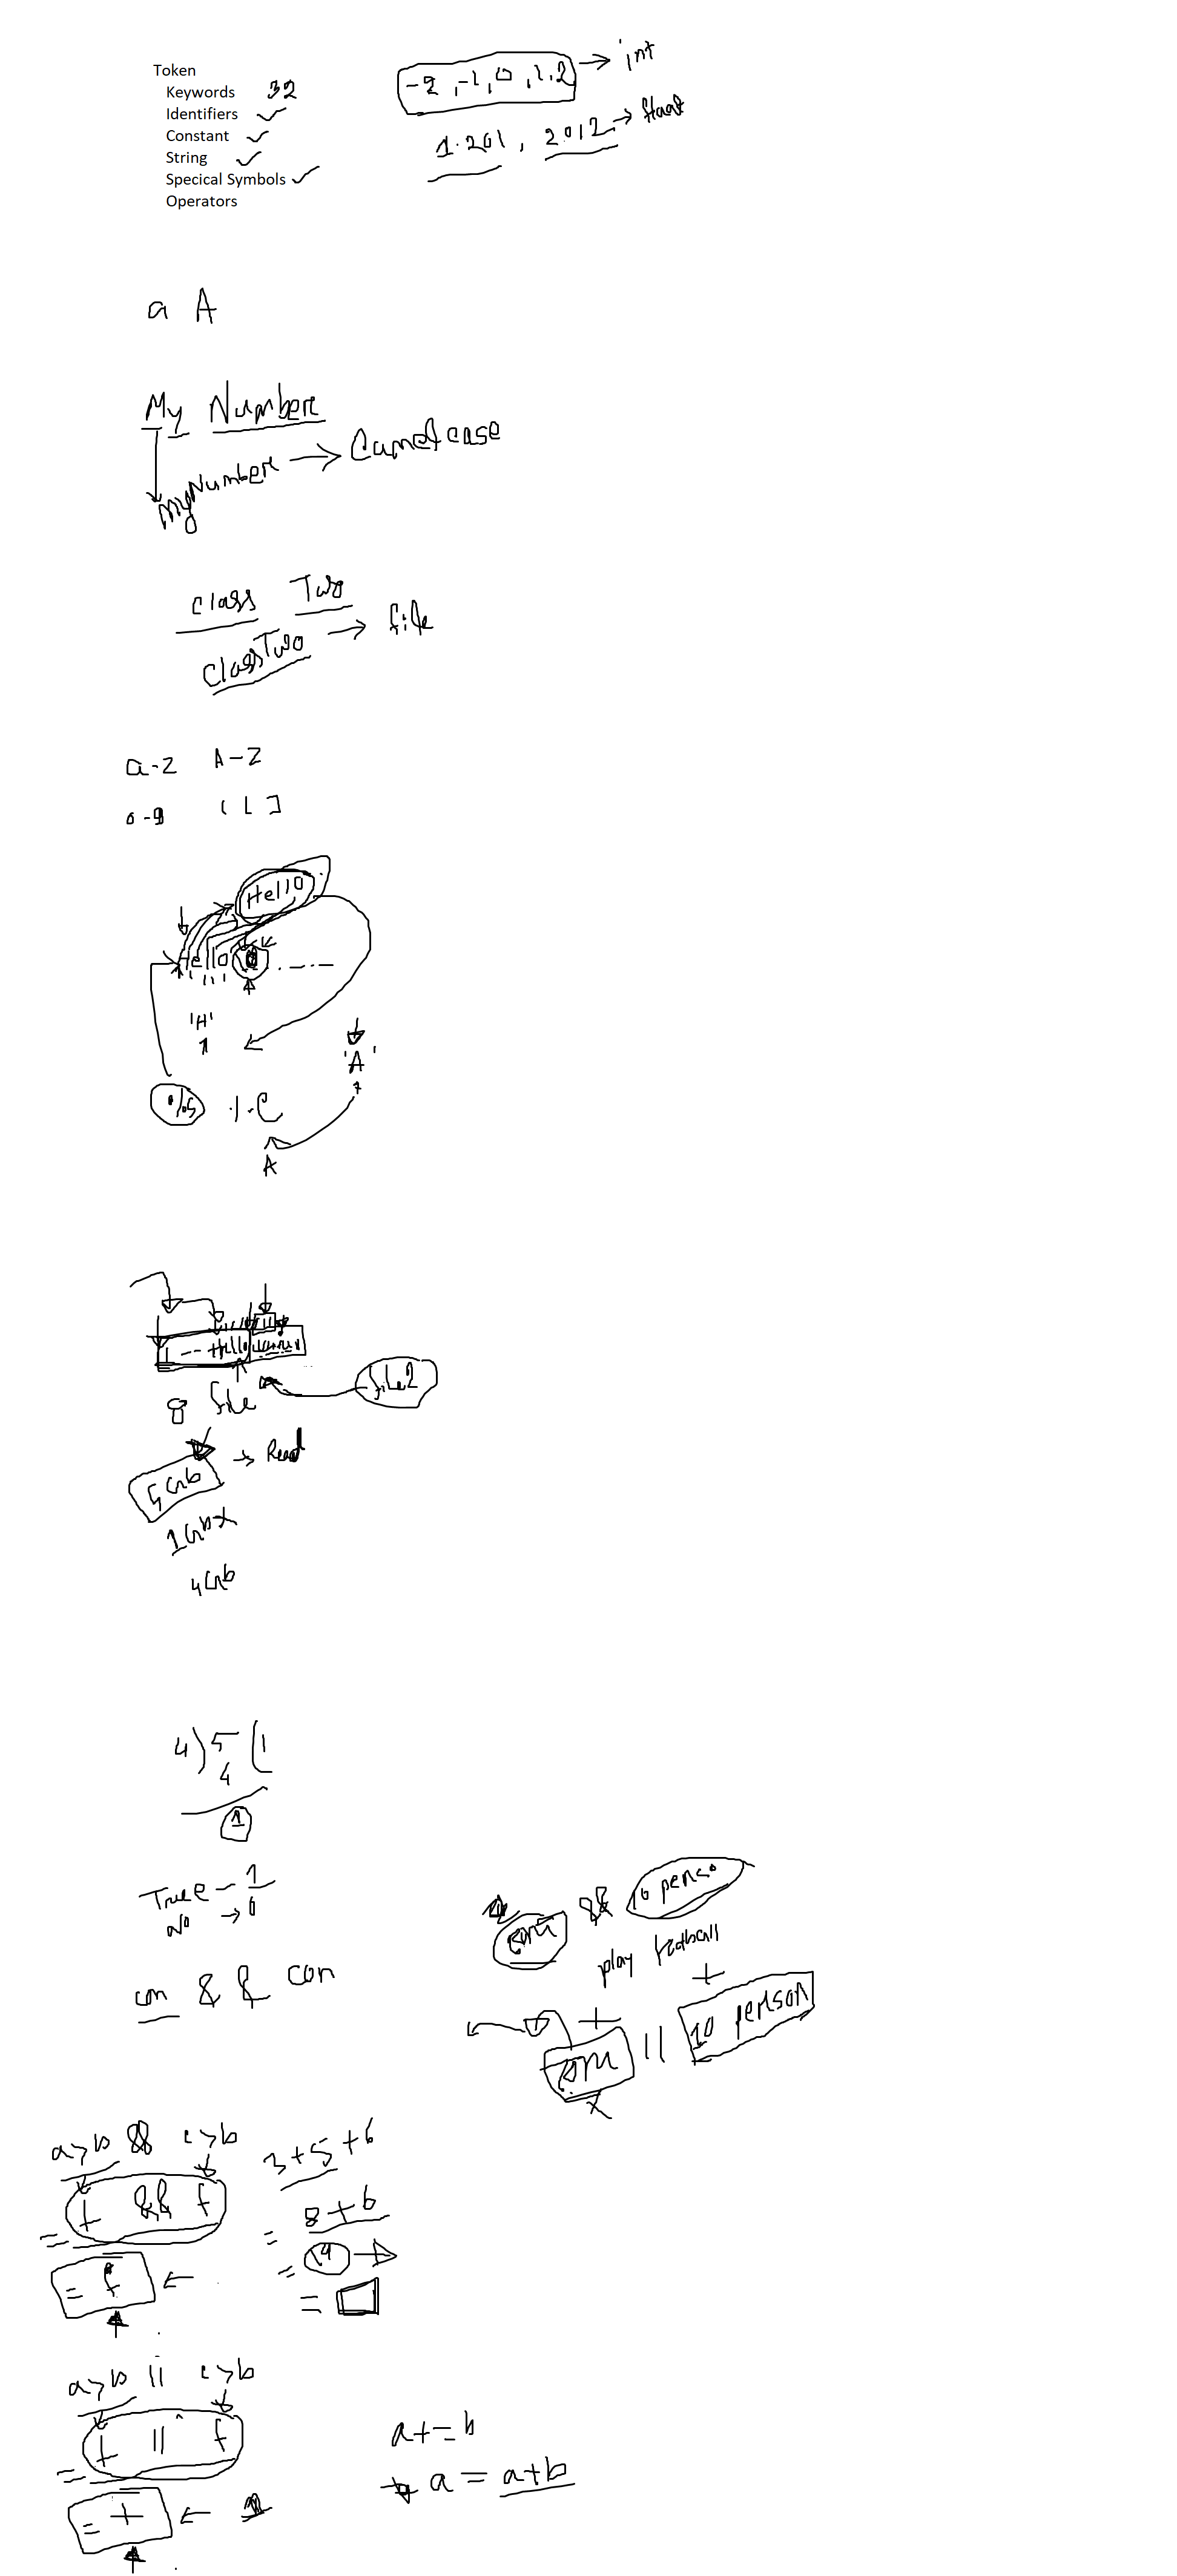 Token
Keywords 32
Identifiers
Constant
String
Specical Symbols
Operators
-2, -1, 0, 1, 2 → int
1.201, 2.012 → float
a A
My Number
myNumber → Camel case
class Two
classTwo → file
a-z A-Z
0-9 ( [ ]
Hello
Hello 0 . - - -
'H'
'A'
%s %c
A
Hello
8 file
file2
5Gb → Read
1Gb
4Gb
4)5(1
4
1
True - 1
No → 0
con && con
&& 10 perso
play football
|| 10 person
a>b && c>b
t && f
= f
3+5+6
= 8+6
= 14
=
a>b || c>b
t || f
= t ← 1
a+=b
a = a+b